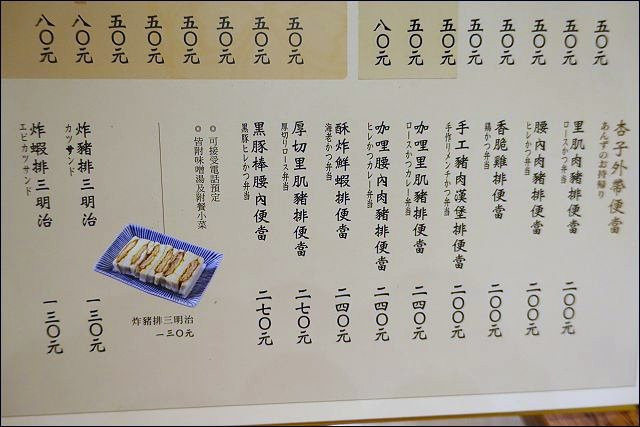 五〇元
五〇元
五〇元
五〇元
五〇元
五〇元
八〇元
五〇元
五〇元
五〇元
五〇元
五〇元
八〇元
八〇元
杏子外帶便當
あんずのお持帰り
里肌肉豬排便當
ロースかつ弁当
二〇〇元
腰內肉豬排便當
ヒレかつ弁当
二〇〇元
香脆雞排便當
鶏かつ弁当
二〇〇元
手工豬肉漢堡排便當
手作りメンチかつ弁当
二〇〇元
咖哩里肌豬排便當
ロースかつカレー弁当
二四〇元
咖哩腰內肉豬排便當
ヒレかつカレー弁当
二四〇元
酥炸鮮蝦排便當
海老かつ弁当
二四〇元
厚切里肌豬排便當
厚切りロース弁当
二七〇元
黑豚棒腰內便當
黒豚ヒレかつ弁当
二七〇元
可接受電話預定
皆附味噌湯及附餐小菜
炸豬排三明治
一三〇元
炸豬排三明治
カツサンド
一三〇元
炸蝦排三明治
エビカツサンド
一三〇元